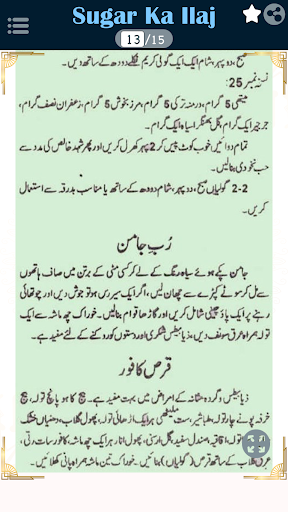 Sugar Ka Ilaj
13 /15
صبح، دوپہر، شام ایک ایک گولی کریم نکلے دودھ کے ساتھ دیں۔
نسخہ نمبر 25:
میتھی 5 گرام، درمنہ ترکی 5 گرام، مرزنجوش 5 گرام، زعفران نصف گرام،
جرجیر ایک گرام، گل بھنگرا سیاہ ایک گرام۔
تمام دوائیں خوب کوٹ پیس کر 2 پہر کھرل کریں اور پھر شہد خالص کی مدد سے
حب نخودی بنالیں۔
2-2 گولیاں صبح، دوپہر، شام دودھ کے ساتھ یا مناسب بدرقہ سے استعمال
کریں۔
رُبِ جامن
جامن پکے ہوئے سیاہ رنگ کے لے کر کسی مٹی کے برتن میں صاف ہاتھوں
سے مل کر سوتے کپڑے سے چھان لیں، اگر ایک سیر رس ہو تو جوش دیں اور چوتھائی
رہنے پر ایک پاؤ چینی شامل کریں اور گاڑھا قوام بنالیں۔ خوراک چھ ماشہ سے ایک
تولہ ہمراہ عرق سونف دیں، ذیابیطس شکری اور دستوں کو روکنے کے لئے مفید ہے۔
قرص کافور
ذیابیطس و گردہ مثانہ کے امراض میں بہت مفید ہے۔ بیج کاہو پانچ تولہ، بیج
خرفہ پونے چار تولہ، طباشیر، ست ملیٹھی ہر ایک اڑھائی تولہ، پھول گلاب، دھنیاں خشک
تولہ، اقاقیا، صندل سفید، گل ارمنی، پھول انار ہر ایک چھ ماشہ، کافور سات رتی،
عرق گلاب کے ساتھ قرص (گولیاں) بنالیں۔ خوراک تین ماشہ ہمراہ پانی کھلائیں۔